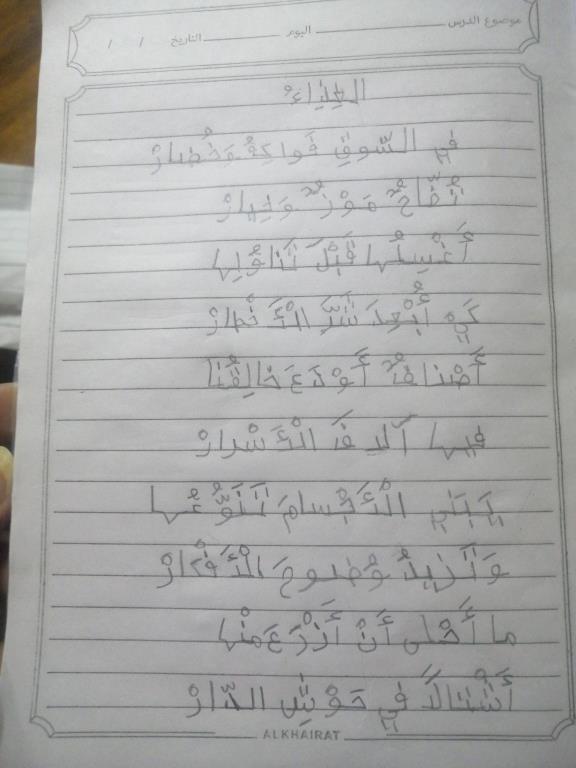 موضوع الدرس اليوم التاريخ / /
الغِذَاءُ
في السُّوقِ فَواكِهُ وَخُضارْ
تُفَّاحٌ مَوْزٌ وَخِيارْ
أَغْسِلُها قَبْلَ تَنَاوُلِها
كَيْ أُبْعِدَ شَرَّ الأَخْطارْ
أَصْنافٌ أَوْدَعَ خالِقُنا
فيها آلافَ الأَسْرارْ
يَبْني الأَجْسامَ تَنَوُّعُها
وَتَزيدُ وُضوحَ الأَفْكارْ
ما أَحْلى أَنْ أَزْرَعَ مِنْها
أَشْتالاً في حَوْشِ الدّارْ
ALKHAIRAT